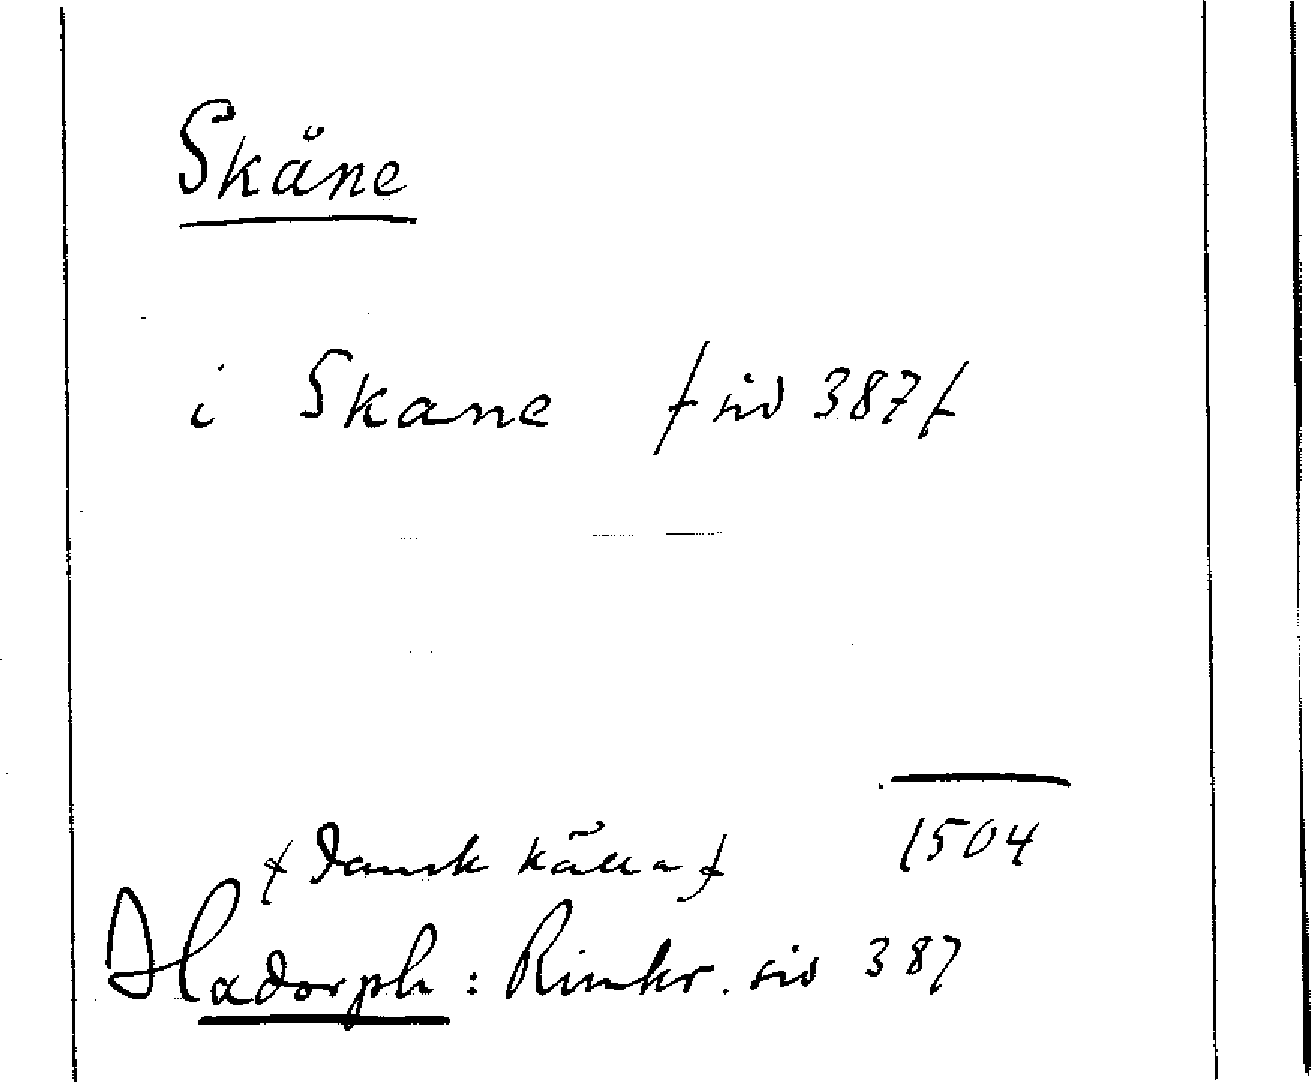 Skåne
i Skane / sid 387 /
1504
/ Dansk källa /
Hadorph: Rimkr. sid 387